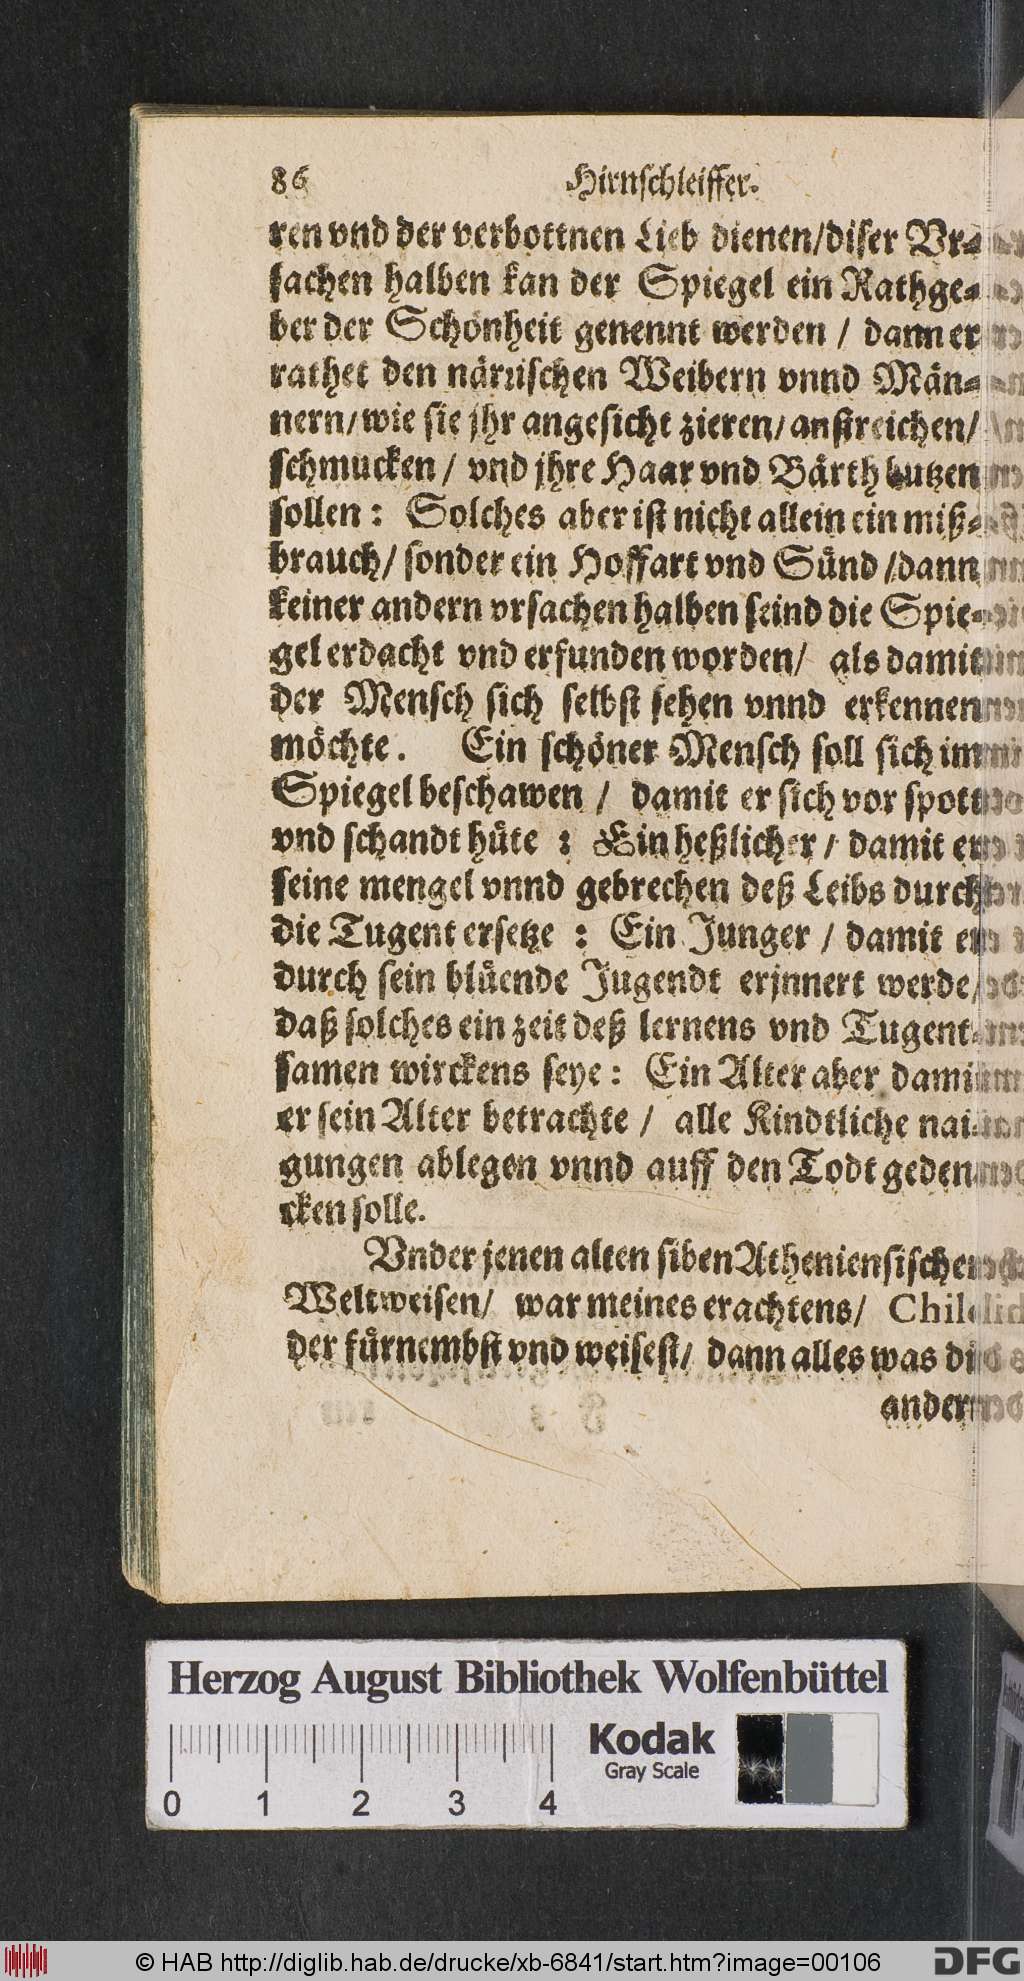 86 Hirnschleiffer.
ren vnd der verbottnen Lieb dienen/diser Vr-
sachen halben kan der Spiegel ein Rathge-
ber der Schönheit genennt werden / dann er
rathet den närrischen Weibern vnnd Män-
nern/wie sie jhr angesicht zieren/anstreichen/
schmucken / vnd jhre Haar vnd Bärth butzen
sollen: Solches aber ist nicht allein ein miß-
brauch/ sonder ein Hoffart vnd Sünd /dann
keiner andern vrsachen halben seind die Spie-
gel erdacht vnd erfunden worden/ als damit
der Mensch sich selbst sehen vnnd erkennen
möchte. Ein schöner Mensch soll sich im
Spiegel beschawen / damit er sich vor spott
vnd schandt hüte : Ein heßlicher / damit er
seine mengel vnnd gebrechen deß Leibs durch
die Tugent ersetze : Ein Junger / damit er
durch sein blüende Jugendt erjnnert werde/
daß solches ein zeit deß lernens vnd Tugent-
samen wirckens seye: Ein Alter aber damit
er sein Alter betrachte / alle Kindtliche nai-
gungen ablegen vnnd auff den Todt geden-
cken solle.
Vnder jenen alten siben Atheniensischen
Weltweisen/ war meines erachtens/ Chilo
der fürnembst vnd weisest/ dann alles was die
andern
Herzog August Bibliothek Wolfenbüttel
Kodak
Gray Scale
0 1 2 3 4
© HAB http://diglib.hab.de/drucke/xb-6841/start.htm?image=00106
DFG